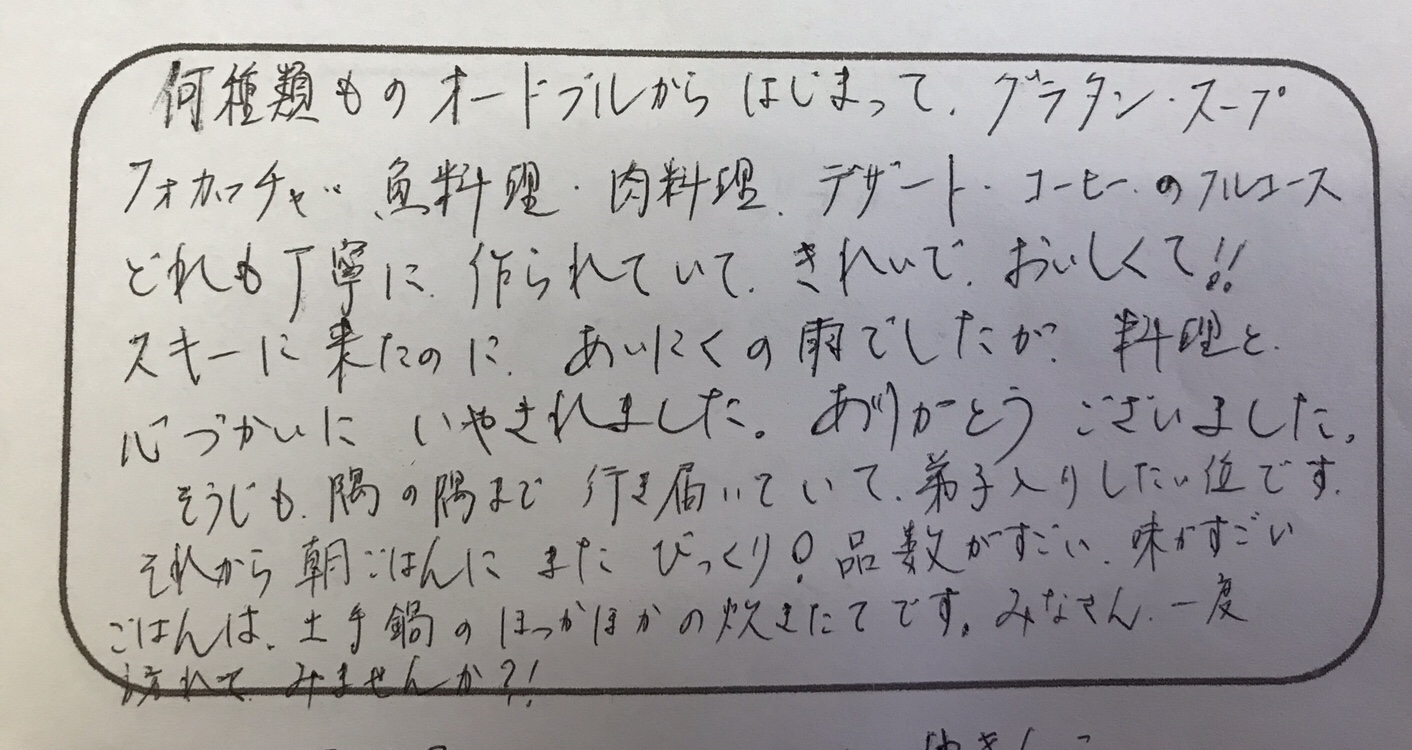 何種類ものオードブルからはじまって、グラタン・スープ
フォカッチャ 魚料理・肉料理、デザート・コーヒーのフルコース
どれも丁寧に、作られていて、きれいで、おいしくて!!
スキーに来たのに、あいにくの雨でしたが、料理と、
心づかいに いやされました。ありがとうございました。
そうじも、隅の隅まで行き届いていて、弟子入りしたい位です。
それから朝ごはんにまたびっくり! 品数がすごい、味がすごい
ごはんは、土手鍋のほっかほかの炊きたてです。みなさん、一度
訪れてみませんか?!